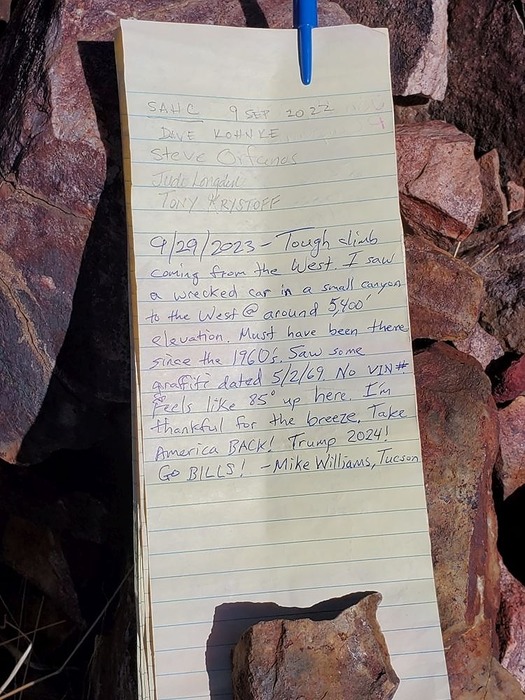 SAHC 9 SEP 2022
DAVE KOHNKE
Steve Orfanos
Judi
TONY KRYSTOFF
9/29/2023 - Tough climb
coming from the West. I saw
a wrecked car in a small canyon
to the West @ around 5,400'
elevation. Must have been there
since the 1960's. Saw some
graffiti dated 5/2/69. No VIN #
Feels like 85° up here. I'm
thankful for the breeze. Take
America BACK! Trump 2024!
GO BILLS! - Mike Williams, Tucson